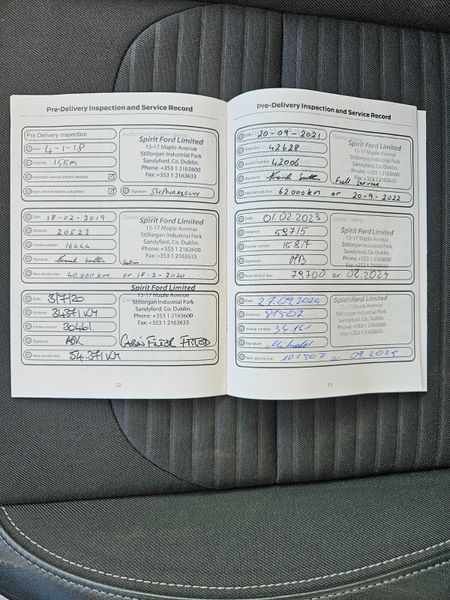 Pre-Delivery Inspection and Service Record
Pre Delivery Inspection
Date: 4-1-18
15KM
Spirit Ford Limited
15-17 Maple Avenue
Stillorgan Industrial Park
Sandyford, Co. Dublin.
Phone: +353 1 2163600
Fax: +353 1 2163633
Signature:
18-02-2019
20523
Invoice number
16444
Signature:
Next service due:
40,000 km or 18-2-2020
Spirit Ford Limited
15-17 Maple Avenue
Stillorgan Industrial Park
Sandyford, Co. Dublin.
Phone: +353 1 2163600
Fax: +353 1 2163633
Spirit Ford Limited
15-17 Maple Avenue
Stillorgan Industrial Park
Sandyford, Co. Dublin.
Phone: +353 1 2163600
Fax: +353 1 2163633
Date:
3/7/20
34371 KM
Invoice number
30461
Signature:
CABIN FILTER FITTED
Next service due:
54371 KM
22
Pre-Delivery Inspection and Service Record
20-09-2021
42628
42006
Spirit Ford Limited
15-17 Maple Avenue
Stillorgan Industrial Park
Sandyford, Co. Dublin.
Phone: +353 1 2163600
Fax: +353 1 2163633
Signature:
Full Service
Next service due:
62000 km or 20-9-2022
Date:
01.02.2023
58715
Invoice number
Signature:
MB
Spirit Ford Limited
15-17 Maple Avenue
Stillorgan Industrial Park
Sandyford, Co. Dublin.
Phone: +353 1 2163600
Fax: +353 1 2163633
Next service due:
78700 or 02.2024
Date:
27.09.2024
81507
Invoice number
34161
Signature:
Spirit Ford Limited
15-17 Maple Avenue
Stillorgan Industrial Park
Sandyford, Co. Dublin.
Phone: +353 1 2163600
Fax: +353 1 2163633
Next service due:
101507 09.2025
23